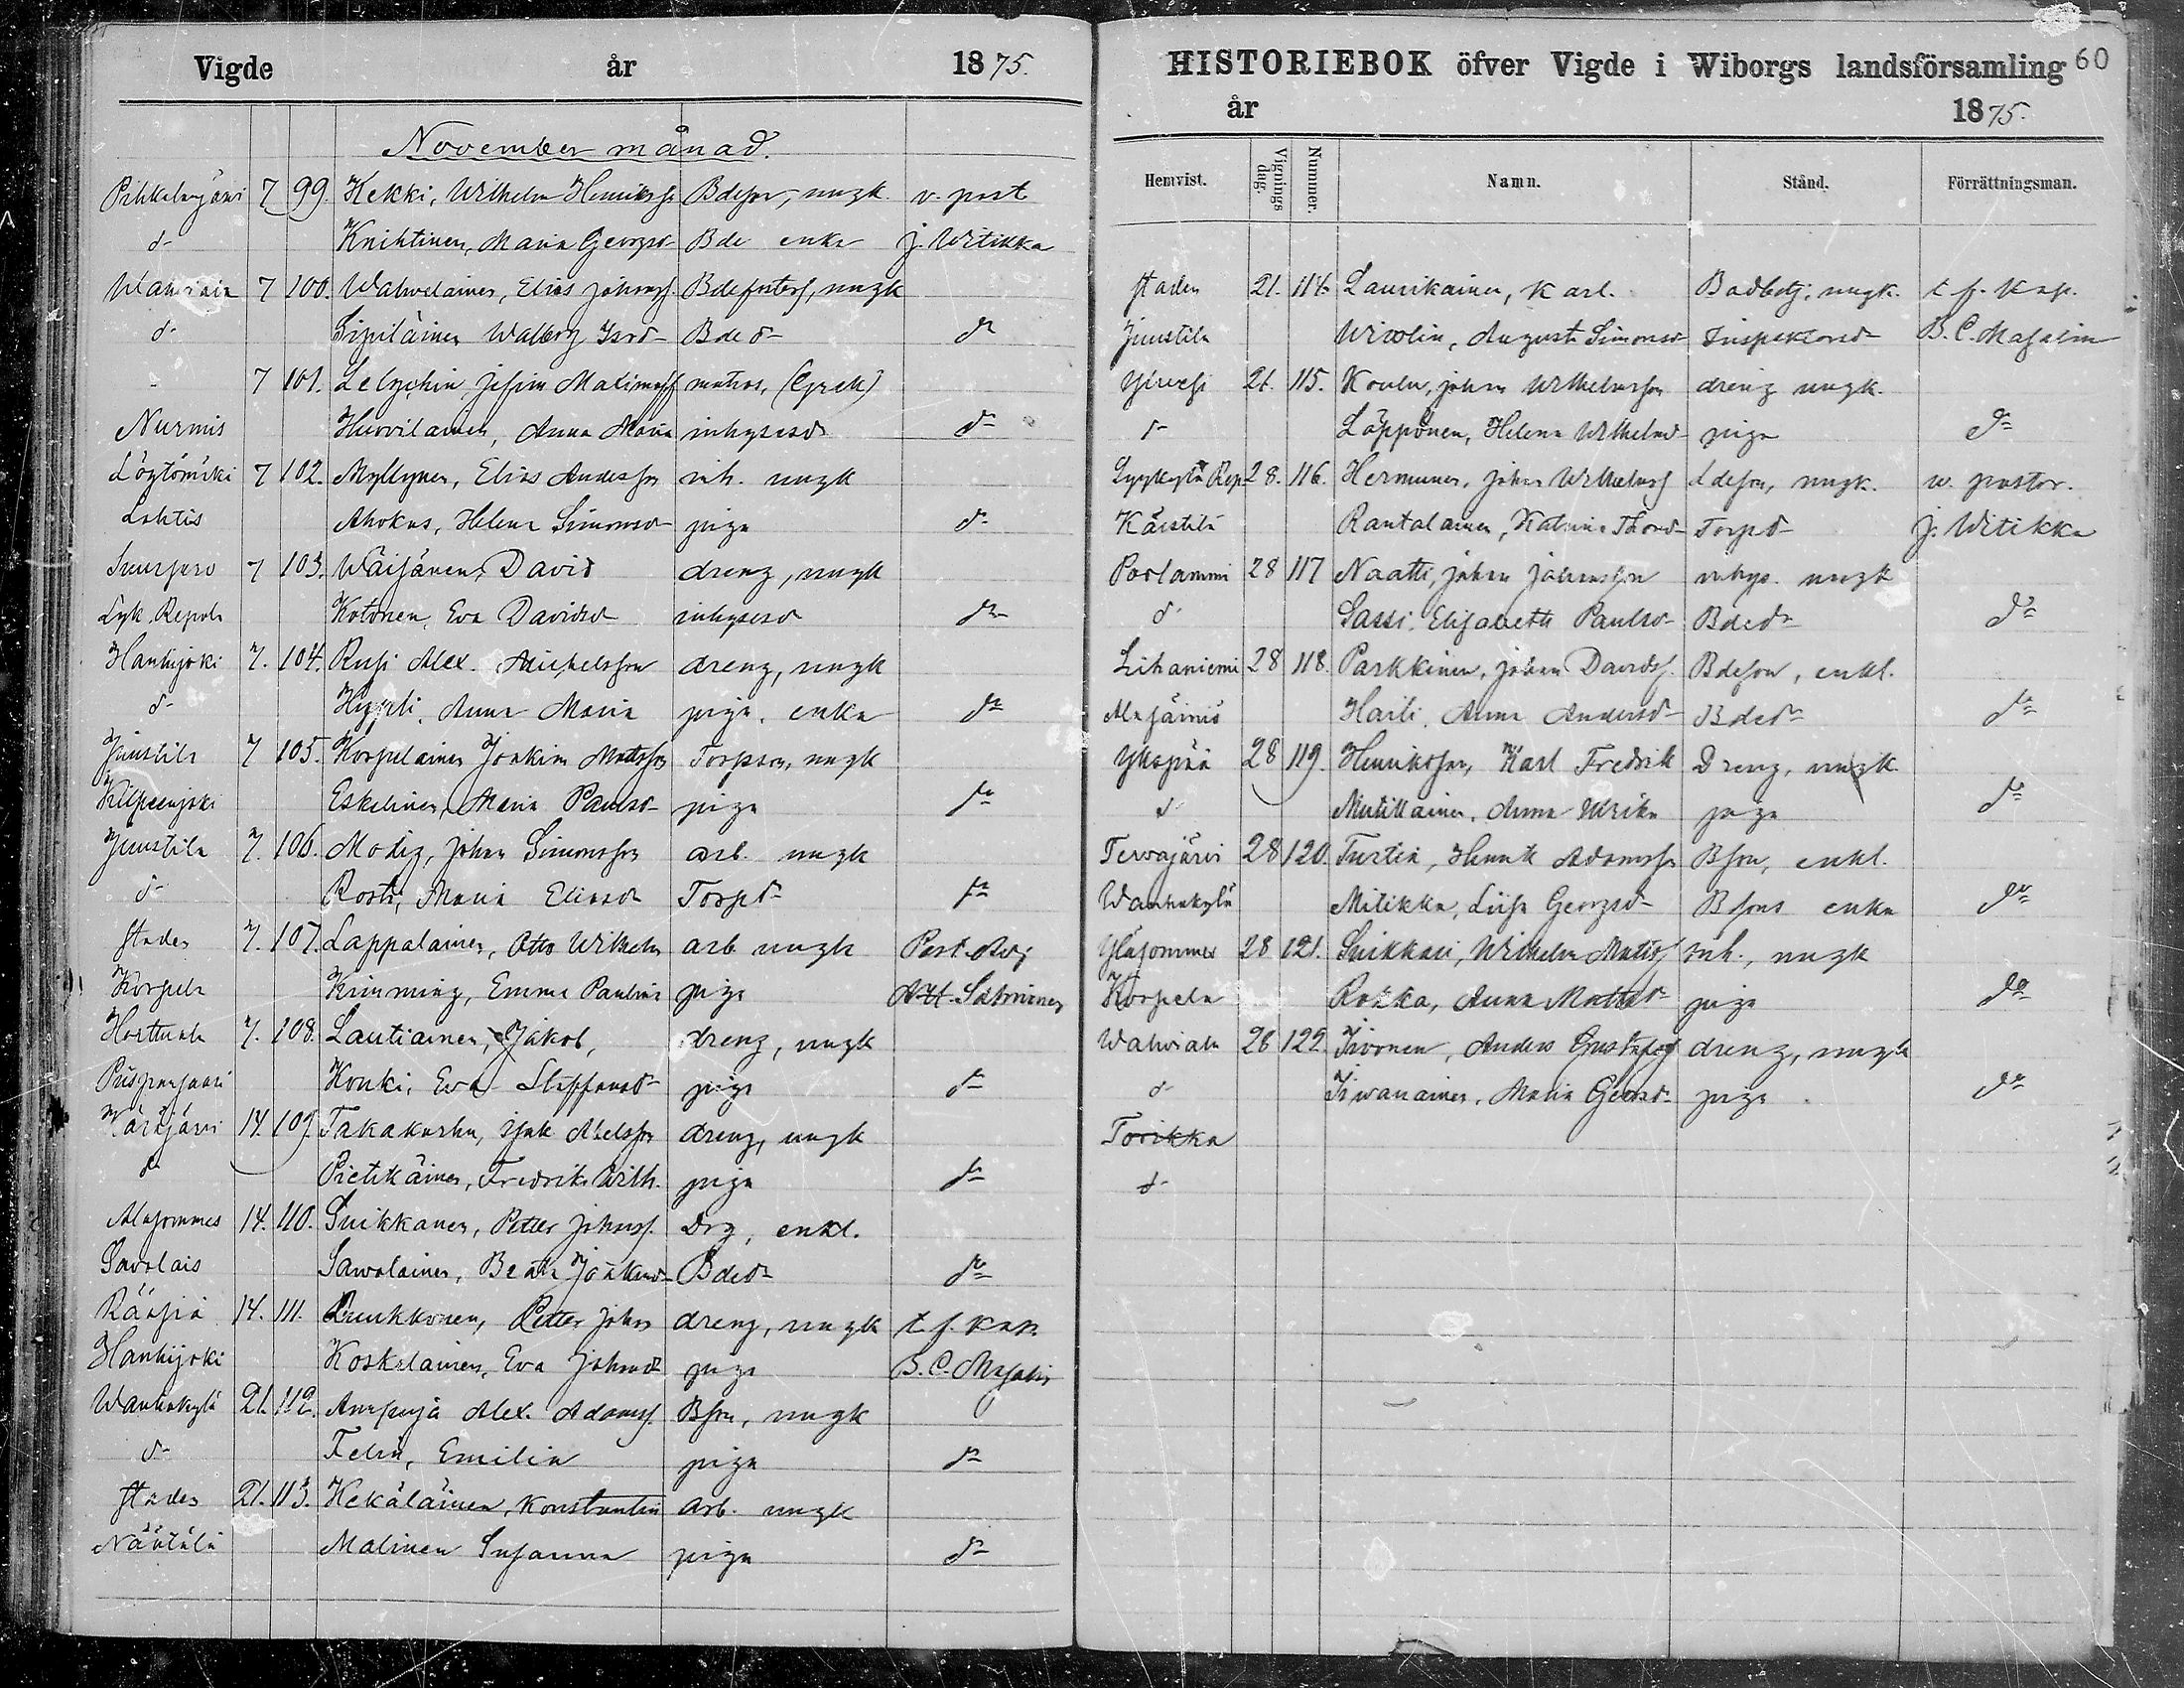 Vigde år 1875.
November månad.
Pihkalanjärvi 7 99. Hekki, Wilhelm Henrikss Bdeson, ungk. v. past
d:o Knihtinen, Maria Georgsd Bde enka J. Witikka
Wahviala 7 100. Wahvelainen, Elias Johanss. Bdefosters, ungk
d:o Sipiläinen Walborg Isasd Bded d:o
7 101. Jefim matros, (Grek)
Nurmis Hurvilainen, Anna Maria inhysesd d:o
7 102. Myllynen, Elias Andersson inh. ungk
Lahtis Ahokas, Helena Simonsd piga d:o
Suurpero 7 103. Wäisänen, David dreng, ungk
Lyk. Repola Kotonen, Eva Davidsd inhysesd d:o
Hanhijoki 7. 104. Rusi Alex. Michelsson dreng, ungk
d:o Hyppli, Anna Maria piga, enka d:o
Juustila 7 105. Korpelainen Joakim Matsson Torpson, ungk
Kilpeenjoki Eskelinen, Maria Paulsd piga d:o
Juustila 7. 106. Modig, Johan Simonsson arb. ungk
d:o Rosti, Maria Eliasd Torpd d:o
staden 7. 107. Lappalainen, Otto Wilhelm arb ungk Past. Adj
Korpela Kimming, Emma Paulina piga
7. 108. Lautiainen, Jakob, dreng, ungk
Piispansaari Houki, Eva Staffansd piga d:o
Kärkjärvi 14. 109. Takakarhu, Isak Abelsson dreng, ungk
d:o Pietikäinen, Fredrika Wilh. piga d:o
Alasommes 14. 110. Suikkanen, Petter Johanss. Drg, enkl.
Savolais Sawolainen, Beata Joakimsd Bded d:o
Rääsiä 14. 111. Ruukkonen, Petter Johans dreng, ungk t.f. kap.
Hanhijoki Koskelainen, Eva Johansd piga B. C. Masalin
Wanhakylä 21. 112. Alex. Adamss. Bson, ungk
d:o Felin, Emilia piga d:o
staden 21. 113. Kekäläinen, Konstantin arb. ungk
Näätälä Malinen Susanna piga d:o
HISTORIEBOK öfver Vigde i Wiborgs landsförsamling 60
år 1875.
Hemvist. Vignings dag. Nummer. Namn. Stånd. Förrättningsman.
staden 21. 114. Laurikainen, Karl. Badbetj. ungk. t.f. kap.
Juustila Wirolin, Augusta Simonsd Inspektorsd B. C. Masalin
Ylivesi 21. 115. Koulu, Johan Wilhelmsson dreng ungk.
d:o Läppönen, Helena Wilhelmsd piga d:o
Lyykylä Rep. 28. 116. Hermunen, Johan Wilhelmss Ldeson, ungk. v. pastor.
Kärstilä Rantalainen, Katrina Thomasd Torpd J. Witikka
Porlammi 28 117 Naatti, Johan Johansson inhys. ungk
d:o Sassi, Elisabeth Paulsd Bded d:o
Lihaniemi 28 118. Parkkinen, Johan Davidss. Bdeson, enkl.
Alasäiniö Haili, Anna Andersd Bded d:o
Ykspää 28 119. Henriksson, Karl Fredrik Dreng, ungk
d:o Mutikainen, Anna Ulrika piga d:o
Tervajärvi 28 120. Turtia, Henrik Adamsson Bson, enkl.
Wanhakylä Mitikka, Liisa Georgsd Bsons enka d:o
Yläsommee 28 121. Suikkari, Wilhelm Matss inh., ungk
Korpela Rokka, Anna Mattsd piga d:o
Wahviala 28 122 Iivonen, Anders Gustafss dreng, ungk
d:o Iiwanainen, Maria Georgsd piga d:o
Torikka
d:o